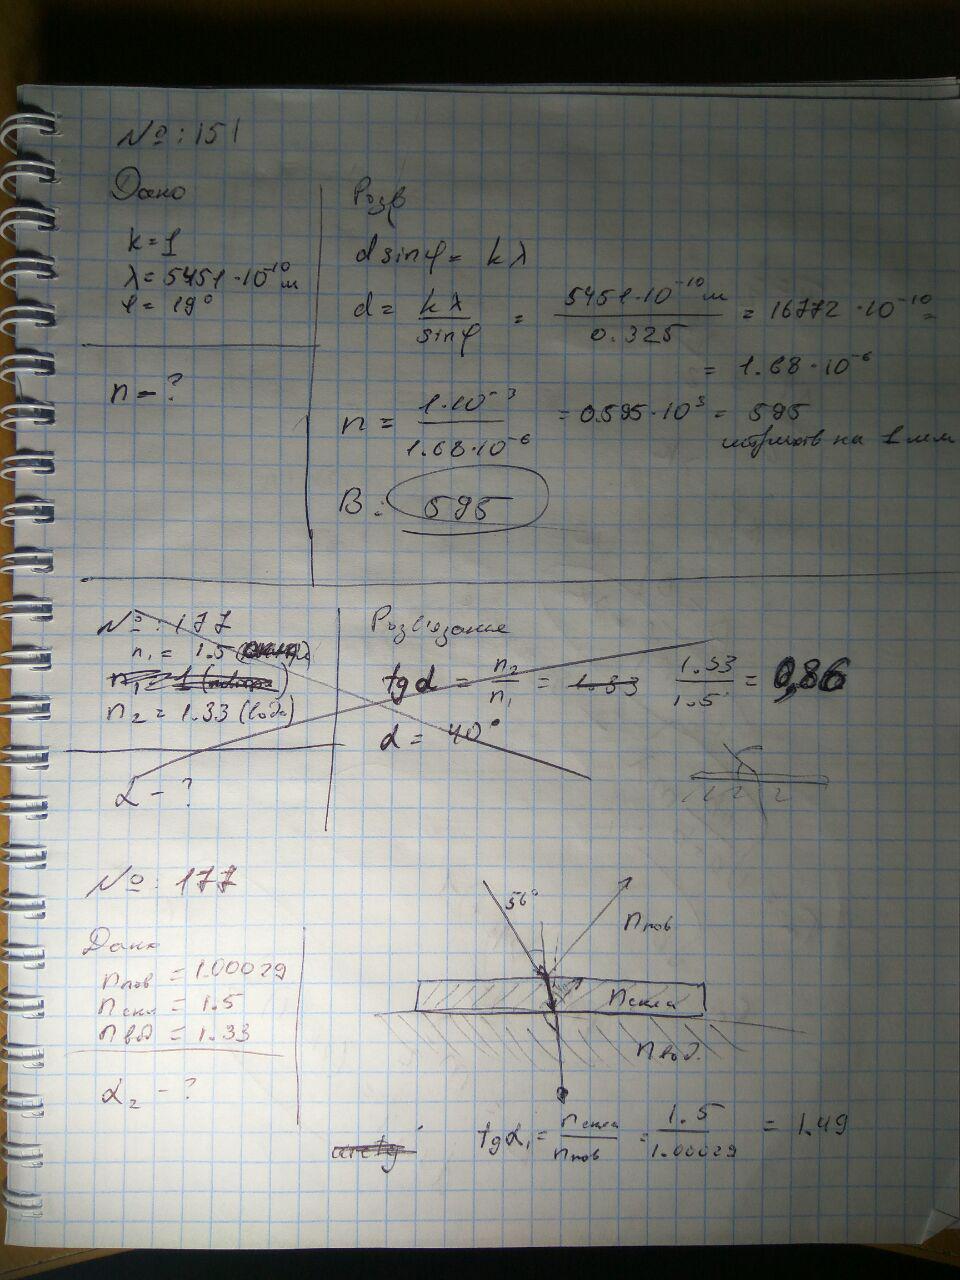 №: 151
Дано
k = 1
λ = 5451·10⁻¹⁰ м
φ = 19°
n - ?
Розв
d sinφ = kλ
d = kλ/sinφ = 5451·10⁻¹⁰ м/0.325 = 16772·10⁻¹⁰ =
= 1.68·10⁻⁶
n = 1·10⁻³/1.68·10⁻⁶ = 0.595·10³ = 595
штрихів на 1 мм
В: 595
№: 177
n₁ = 1.5
n₁ = 1
n₂ = 1.33 (вода)
α - ?
Розв'язання
tgα = n₂/n₁ = 1.33 1.33/1.5 = 0,86
α = 40°
№: 177
Дано
nпов = 1.00029
nскл = 1.5
nвод = 1.33
α₂ - ?
56°
nпов
nскла
nвод.
arctg
tgα₁ = nскла/nпов = 1.5/1.00029 = 1.49